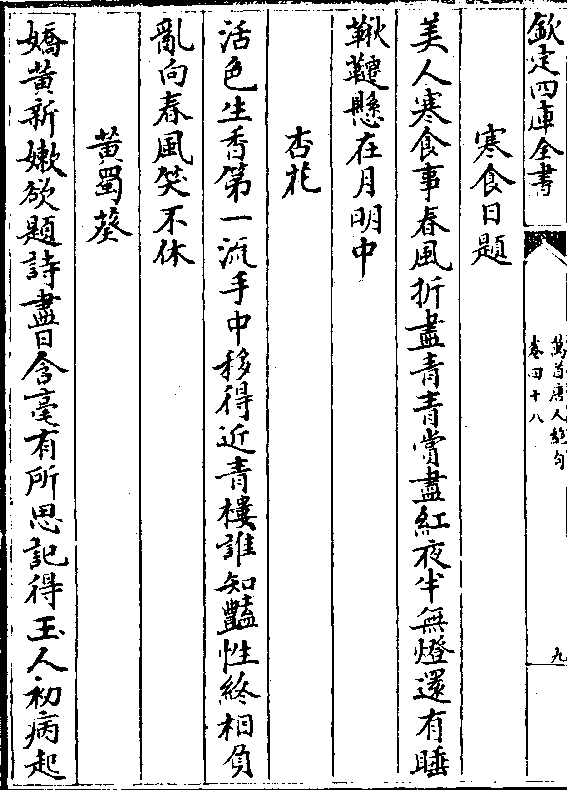 欽定四庫全書
萬首唐人絶句
卷四十八
九
寒食日題
美人寒食事春風折盡青青賞盡紅夜半無燈還有睡
鞦韆懸在月明中
杏花
活色生香第一流手中移得近青樓誰知豔性終相負
亂向春風笑不休
黄蜀葵
嬌黄新嫩欲題詩盡日含毫有所思記得玉人初病起